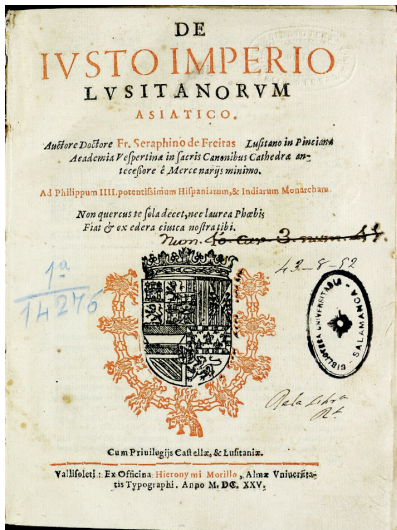 DE
IVSTO IMPERIO
LVSITANORVM
ASIATICO.
Auctore Doctore Fr. Seraphino de Freitas Lusitano in Pinciana
Academia Vespertinæ in sacris Canonibus Cathedræ an-
tecessore è Mercenarijs minimo.
Ad Philippum IIII. potentissimum Hispaniarum, & Indiarum Monarcham.
Non quercus te sola decet, nec laurea Phœbi,
Fiat & ex edera ciuica nostra tibi.
43-8-52
1ª
14276
BIBLIOTECA UNIVERSITARIA - SALAMANCA -
Cum Priuilegijs Castellæ, & Lusitaniæ.
Vallisoleti: Ex Officina Hieronymi Morillo, Almæ Vniuersita-
tis Typographi. Anno M.DC.XXV.